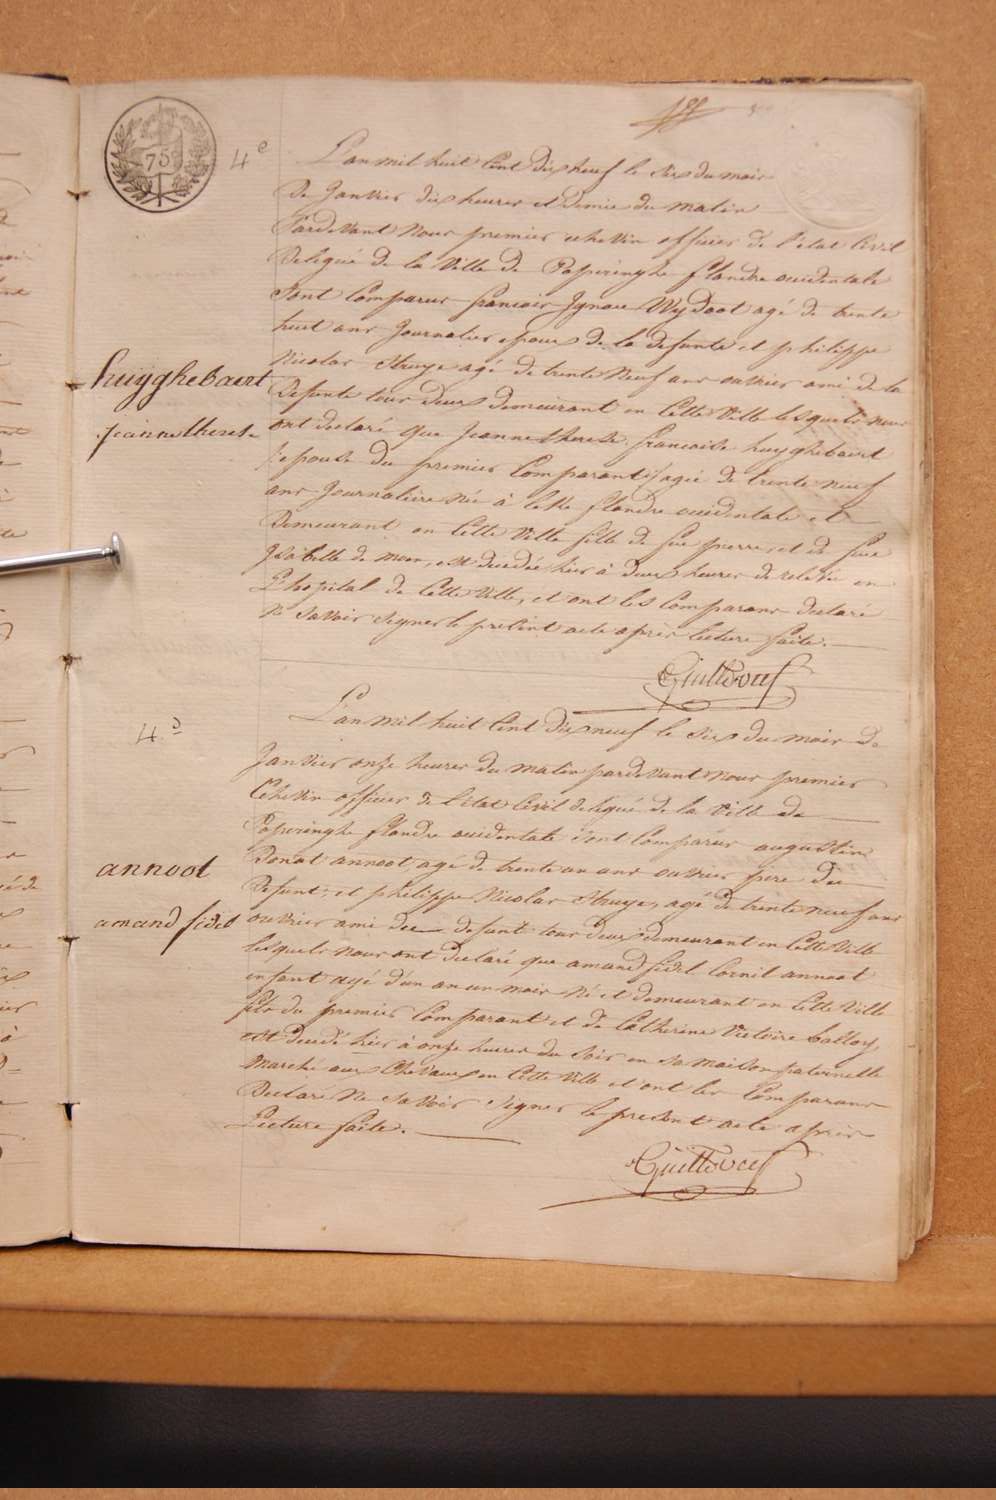 75
4e
L'an mil huit Cent dix neuf le Six du mois
De Janvier dix heures et demie du matin
Pardevant Nous premier echevin officier de l'état Civil
Delégué de la Ville de Poperinghe flandre occidentale
Sont Comparus francois Ignace Wydoot agé de trente
huit ans Journalier epoux de la defunte et philippe
Nicolas Struye agé de trente Neuf ans ouvrier ami de la
Defunte tous deux demeurant en Cette Ville lesquels nous
huÿghebaert
Jeanne therese
ont declaré que Jeanne therese francoise huyghebaert
epouse du premier Comparant agée de trente neuf
ans Journaliere Née à flandre occidentale et
Demeurant en Cette Ville fille de feu pierre, et de feue
Isabelle de moor, est decedée hier à deux heures de relevée en
L'hopital de Cette Ville, et ont les Comparans declaré
Ne Savoir Signer le present acte après lecture faite.
4.
L'an mil huit Cent dix neuf le Six du mois de
Janvier onze heures du matin pardevant Nous premier
Echevin officier de l'état Civil delegué de la Ville de
Poperinghe flandre occidentale Sont Comparus augustin
Donat annoot, agé de trente un ans ouvrier pere du
Defunt, et philippe Nicolas Struye, agé de trente neuf ans
ouvrier ami du defunt tous deux demeurant en Cette Ville
annoot
amand fidel
lesquels nous ont declaré que amand fidel Cornil annoot
enfant agé d'un an un mois Né et demeurant en Cette Ville
fils du premier Comparant et de Catherine Victoire
est decedé hier à onze heures du Soir en Sa maison paternelle
Marché aux Chevaux en Cette Ville et ont les Comparans
Declaré Ne Savoir Signer le present acte après
Lecture faite.